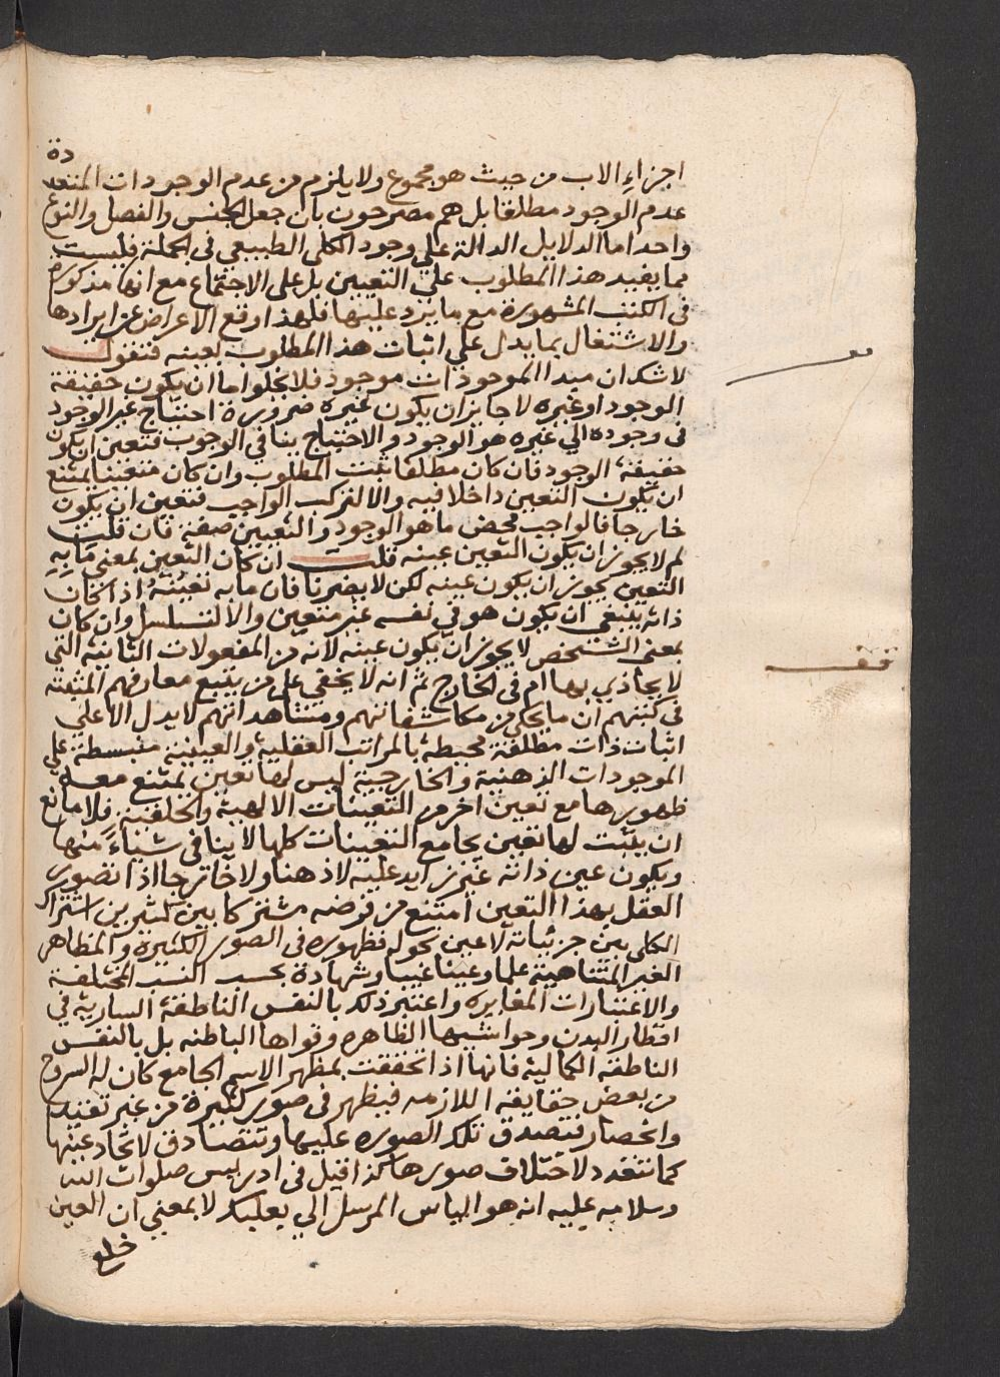 اجزاء الاب من حيث هو مجموع ولا يلزم من عدم الوجودات المتعددة
عدم الوجود مطلقا بل هم مصرحون بان جعل الجنس والفصل والنوع
واحد اما الدلايل الدالة علي وجود الكلي الطبيعي في الجملة فليست
مما يفيد هذا المطلوب علي التعيين بل علي الاجتماع مع انها مذكورة
في الكتب المشهورة مع ما يرد عليها فلهذا وقع الاعراض عن ايرادها
والاشتغال بما يدل علي اثبات هذا المطلوب بعينه فنقول
لا شك ان مبدا الموجودات موجود فلا يخلوا اما ان يكون حقيقة
الوجود او غيره لا جايز ان يكون غيره ضرورة احتياج غير الوجود
في وجوده الي غيره هو الوجود والاحتياج ينافي الوجوب فتعين ان يكون
حقيقة الوجود فان كان مطلقا ثبت المطلوب وان كان متعينا يمتنع
ان يكون التعين داخلا فيه والا لتركب الواجب فتعين ان يكون
خارجا فالواجب محض ما هو الوجود والتعيين صفة فان قلت
لم لا يجوز ان يكون التعين عينه قلت ان كان التعين بمعني ما به
التعين يجوز ان يكون عينه لكن لا يضرنا فان ما به تعينه اذا كان
ذاته ينبغي ان يكون هو في نفسه غير متعين والا لتسلسل وان كان
بمعني التشخص لا يجوز ان يكون عينه لانه من المعقولات الثانية التي
لا يحاذي بها ام في الخارج ثم انه لا يخفي علي من يتبع معارفهم المثبتة
في كتبهم ان ما يحكي من مكاشفاتهم ومشاهداتهم لا يدل الا علي
اثبات ذات مطلقة محيطة بالمراتب العقلية والعينية منبسطة علي
الموجودات الذهنية والخارجية ليس لها تعين يمتنع معه
ظهورها مع تعين اخر من التعينات الالهية والخلقية فلا مانع
ان يثبت لها تعين يجامع التعينات كلها لا ينافي شياء منها
ويكون عين ذاته غير زايد عليه لا ذهنا ولا خارجا اذا تصوره
العقل بهذا التعين امتنع من فرضه مشتركا بين كثيرين اشتراك
الكلي بين جزئياته لا عين تحوله فظهوره في الصور الكثيرة والمظاهر
الغير المتناهية علما وعينا غيبا وشهادة بحسب النسب المختلفة
والاعتبارات المغايرة واعتبر ذلك بالنفس الناطقة السارية في
اقطار البدن وحواشيها الظاهره وقواها الباطنه بل بالنفس
الناطقة الكمالية فانها اذا تحققت بمظهر الاسم الجامع كان له السروح
من بعض حقايقه اللازمه فيظهر في صور كثيرة من غير تقيد
وانحصار فتصدق تلك الصوره عليها وتتصادق لاتحاد عينها
كما تتعدد لاختلاف صورها كذا قيل في ادريس صلوات الله
وسلامه عليه انه هو الياس المرسل الي بعلبك لا بمعني ان العين
خلع